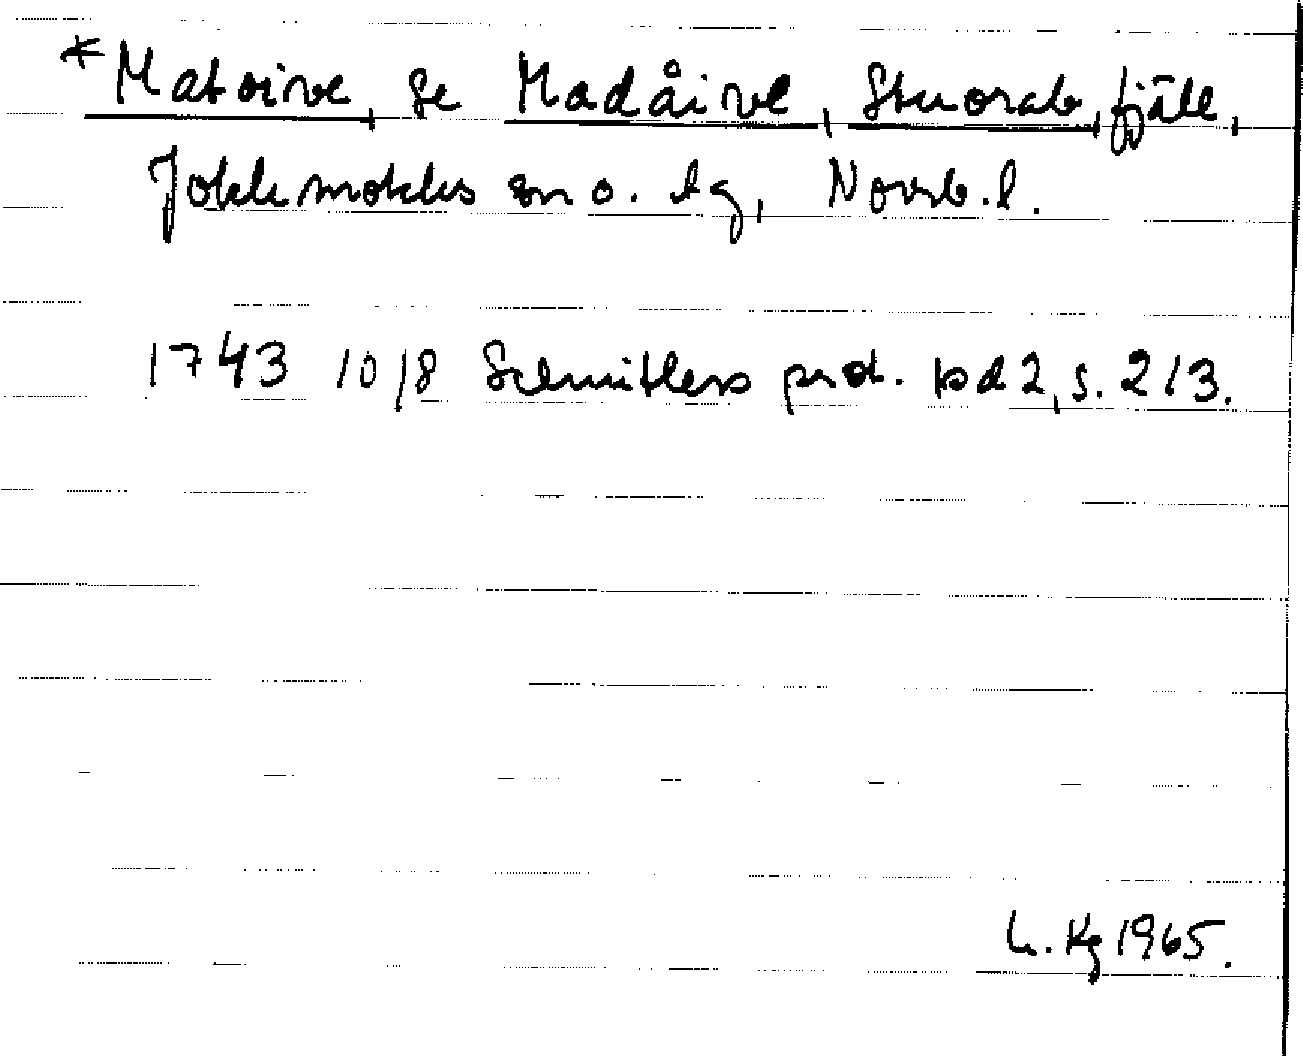 *Matoive, se Madåive, Stuorab, fjäll,
Jokkmokks sn o. lg, Norrb. l.
1743 10/8 Schnitlers prot. bd 2, s. 213.
L. Kg 1965.